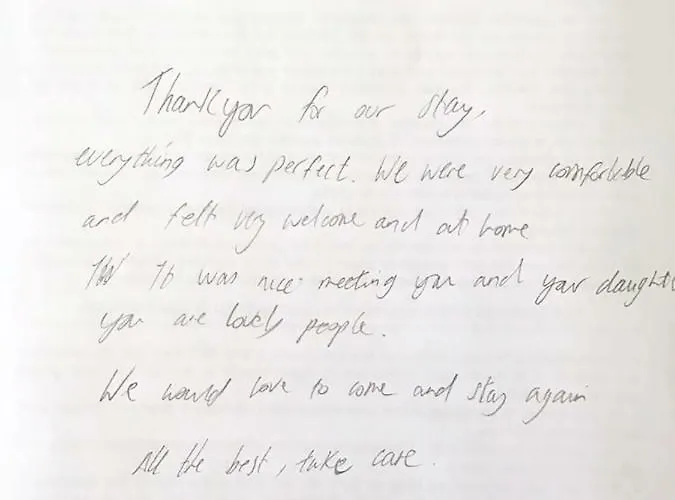 Thank you for our stay,
everything was perfect. We were very comfortable
and felt very welcome and at home
It was nice meeting you and your daught
you are lovely people.
We would love to come and stay again
All the best, take care.